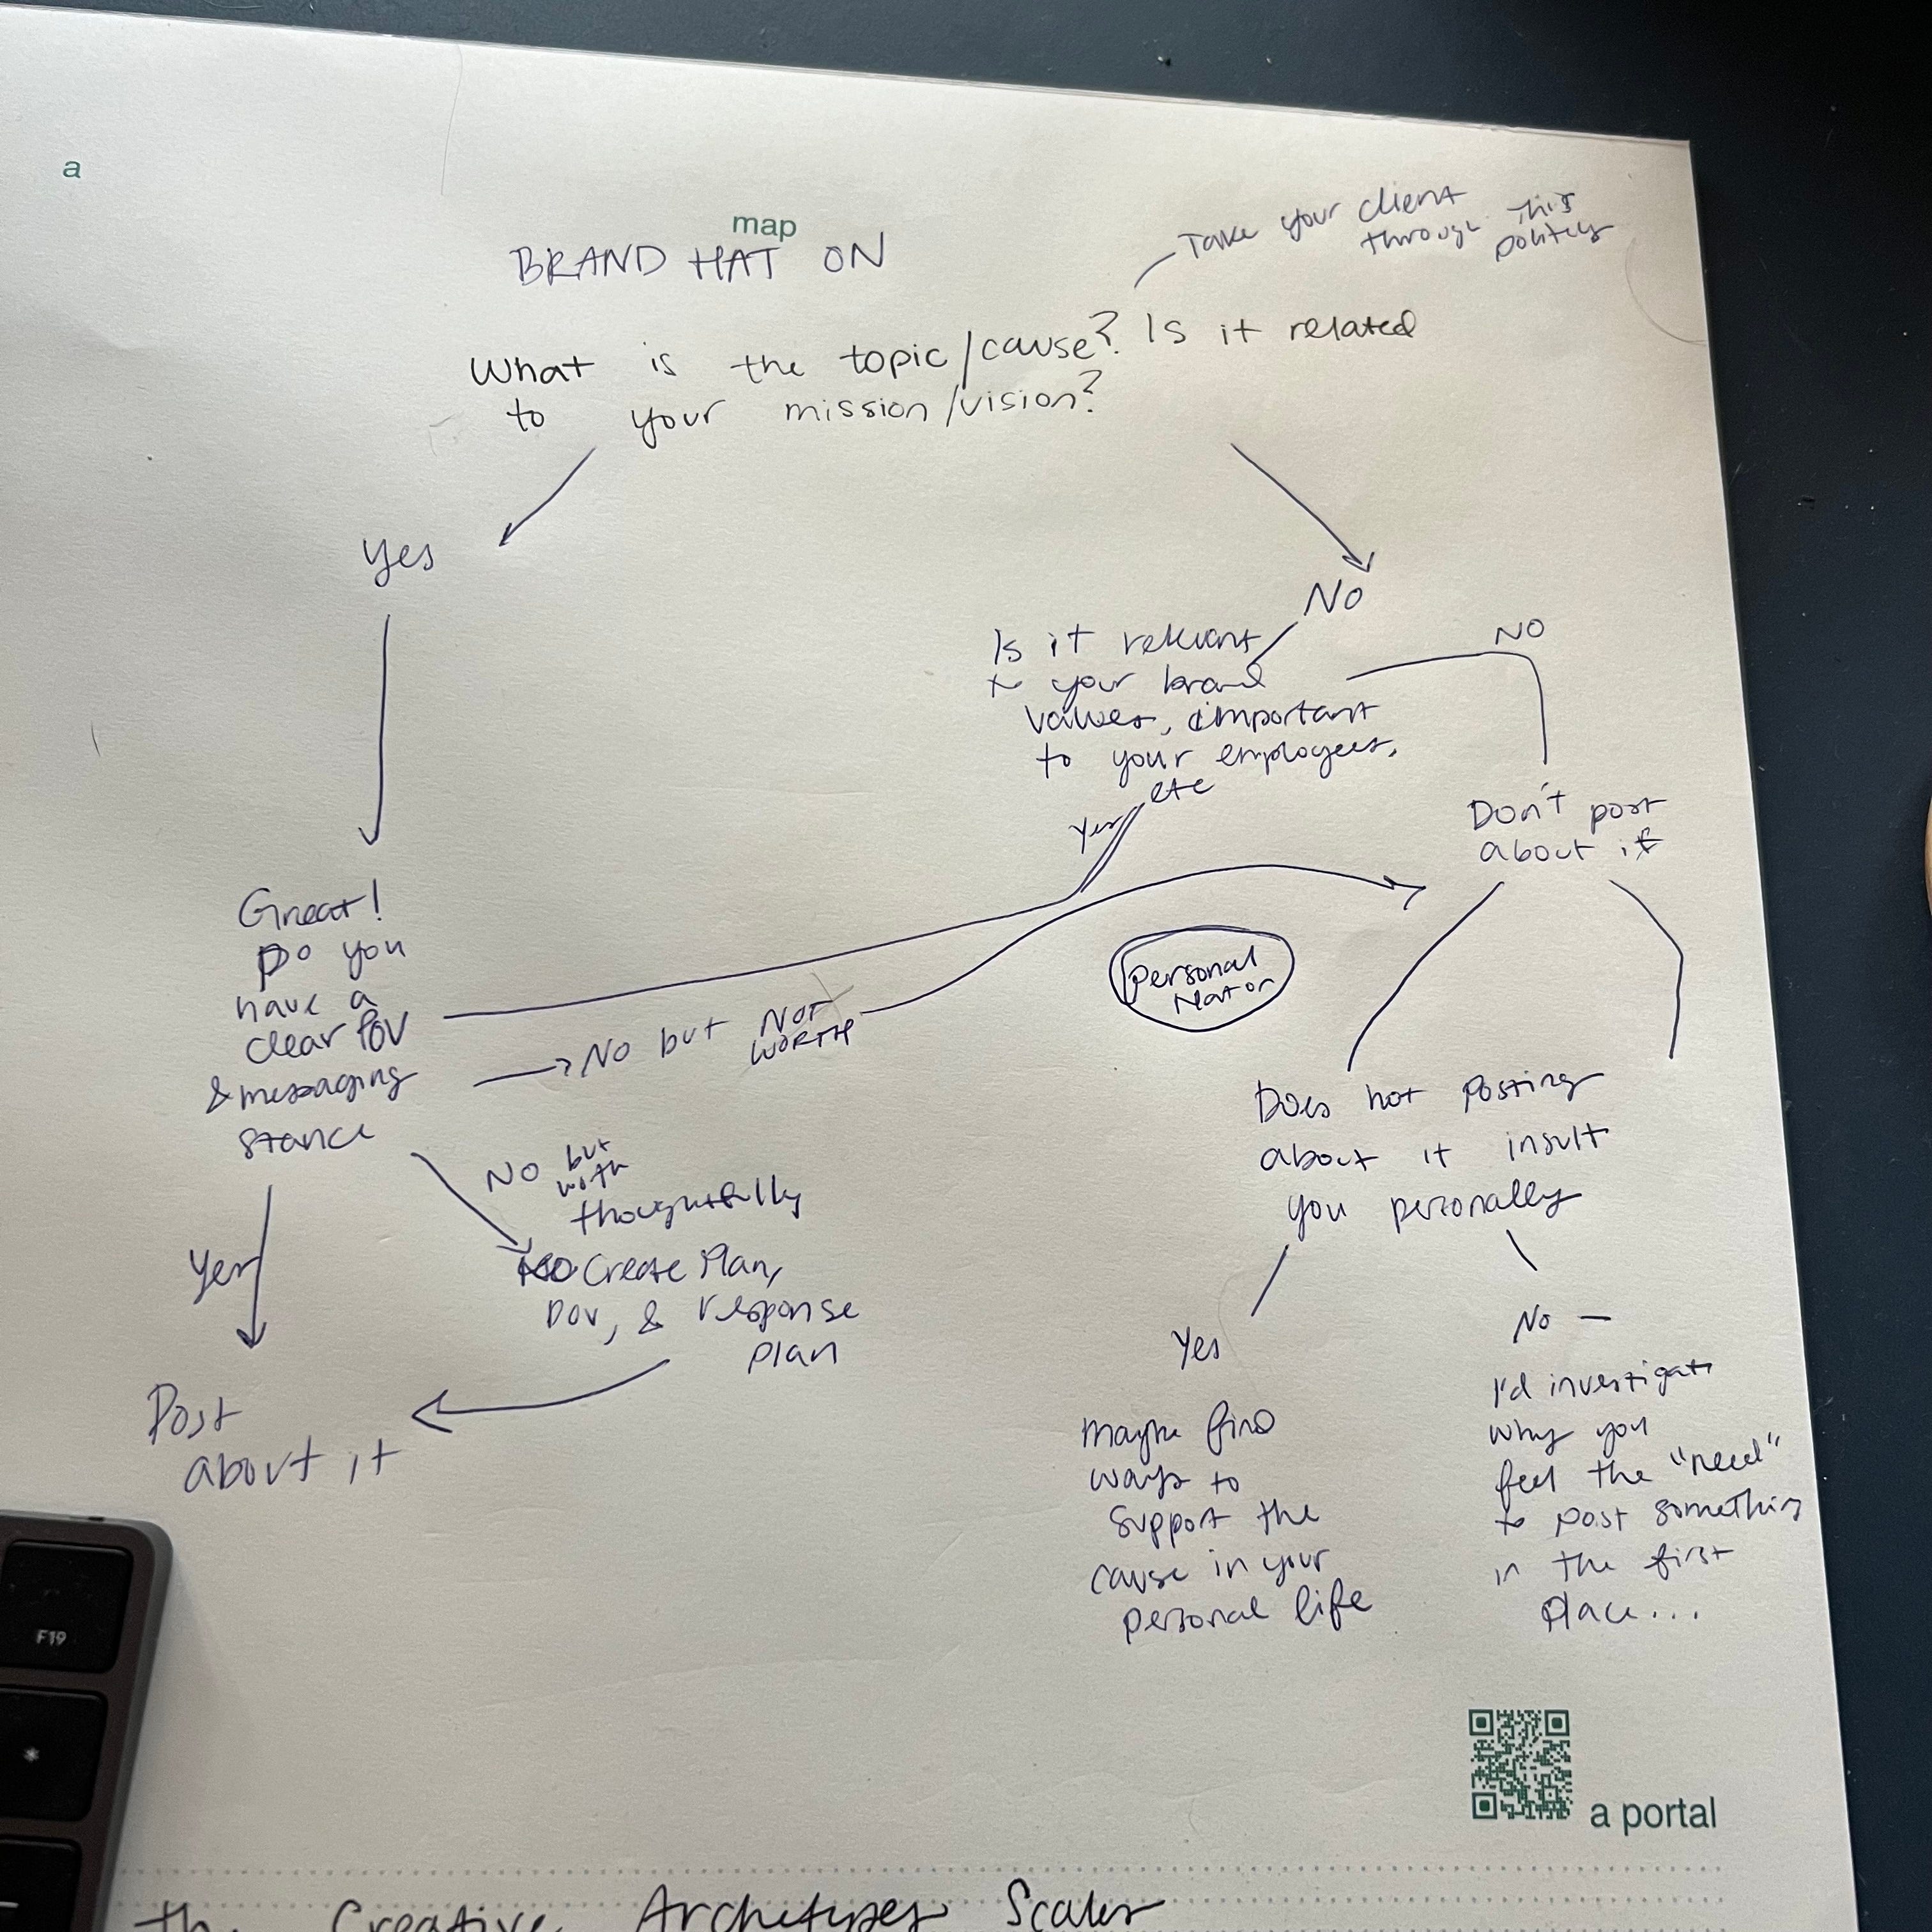 a
map
BRAND HAT ON
Take your client
through this
politely
What is the topic/cause? Is it related
to your mission/vision?
Yes
No
Is it relevant
to your brand
values, important
to your employees,
etc
NO
Yes
Don't post
about it
Great!
Do you
have a
clear POV
& messaging
stance
No but NOT
WORTH
personal
hat on
NO but
worth
thoughtfully
Create Plan,
POV, & response
plan
Yes
Post
about it
Does not posting
about it insult
you personally
Yes
maybe find
ways to
support the
cause in your
personal life
No —
I'd investigate
why you
feel the "need"
to post something
in the first
place...
a portal
F19
*
the Creative Archetypes Scales